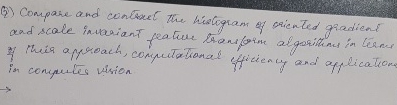 Q) Compare and contrast the histogram of oriented gradient
and scale invariant feature transform algorithms in terms
of their approach, computational efficiency and applications
in computer vision
→